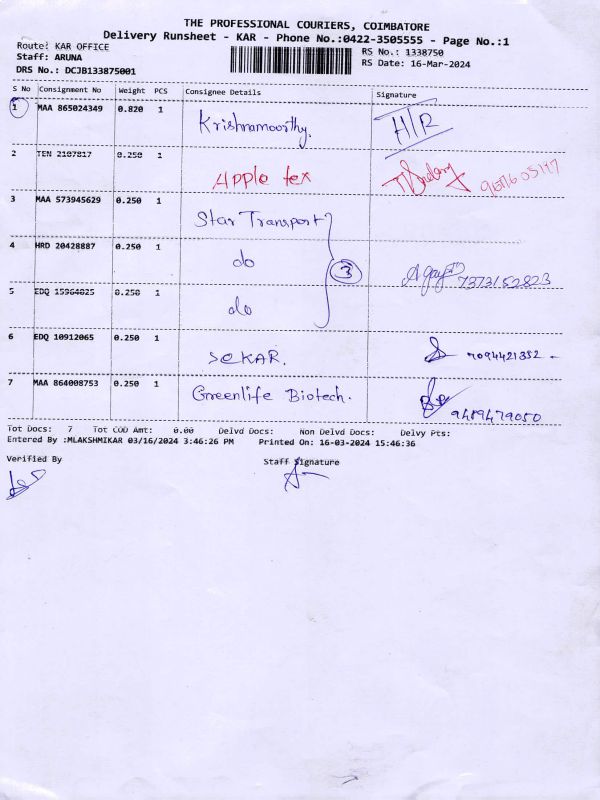 THE PROFESSIONAL COURIERS, COIMBATORE
Delivery Runsheet - KAR - Phone No.:0422-3505555 - Page No.:1
Route: KAR OFFICE
Staff: ARUNA
DRS No.: DCJB133875001
RS No.: 1338750
RS Date: 16-Mar-2024
S No Consignment No Weight PCS Consignee Details Signature
1 MAA 865024349 0.820 1 Krishnamoorthy. H/R
2 TEN 2187817 0.250 1 Apple tex
3 MAA 573945629 0.250 1 Star Transport
4 HRD 20428887 0.250 1 do 3 7373152823
5 EDQ 15964025 0.250 1 do
6 EDQ 10912065 0.250 1 SEKAR. 7094421352 -
7 MAA 864008753 0.250 1 Greenlife Biotech. 9489479050
Tot Docs: 7 Tot COD Amt: 0.00 Delvd Docs: Non Delvd Docs: Delvy Pts:
Entered By :MLAKSHMIKAR 03/16/2024 3:46:26 PM Printed On: 16-03-2024 15:46:36
Verified By Staff Signature